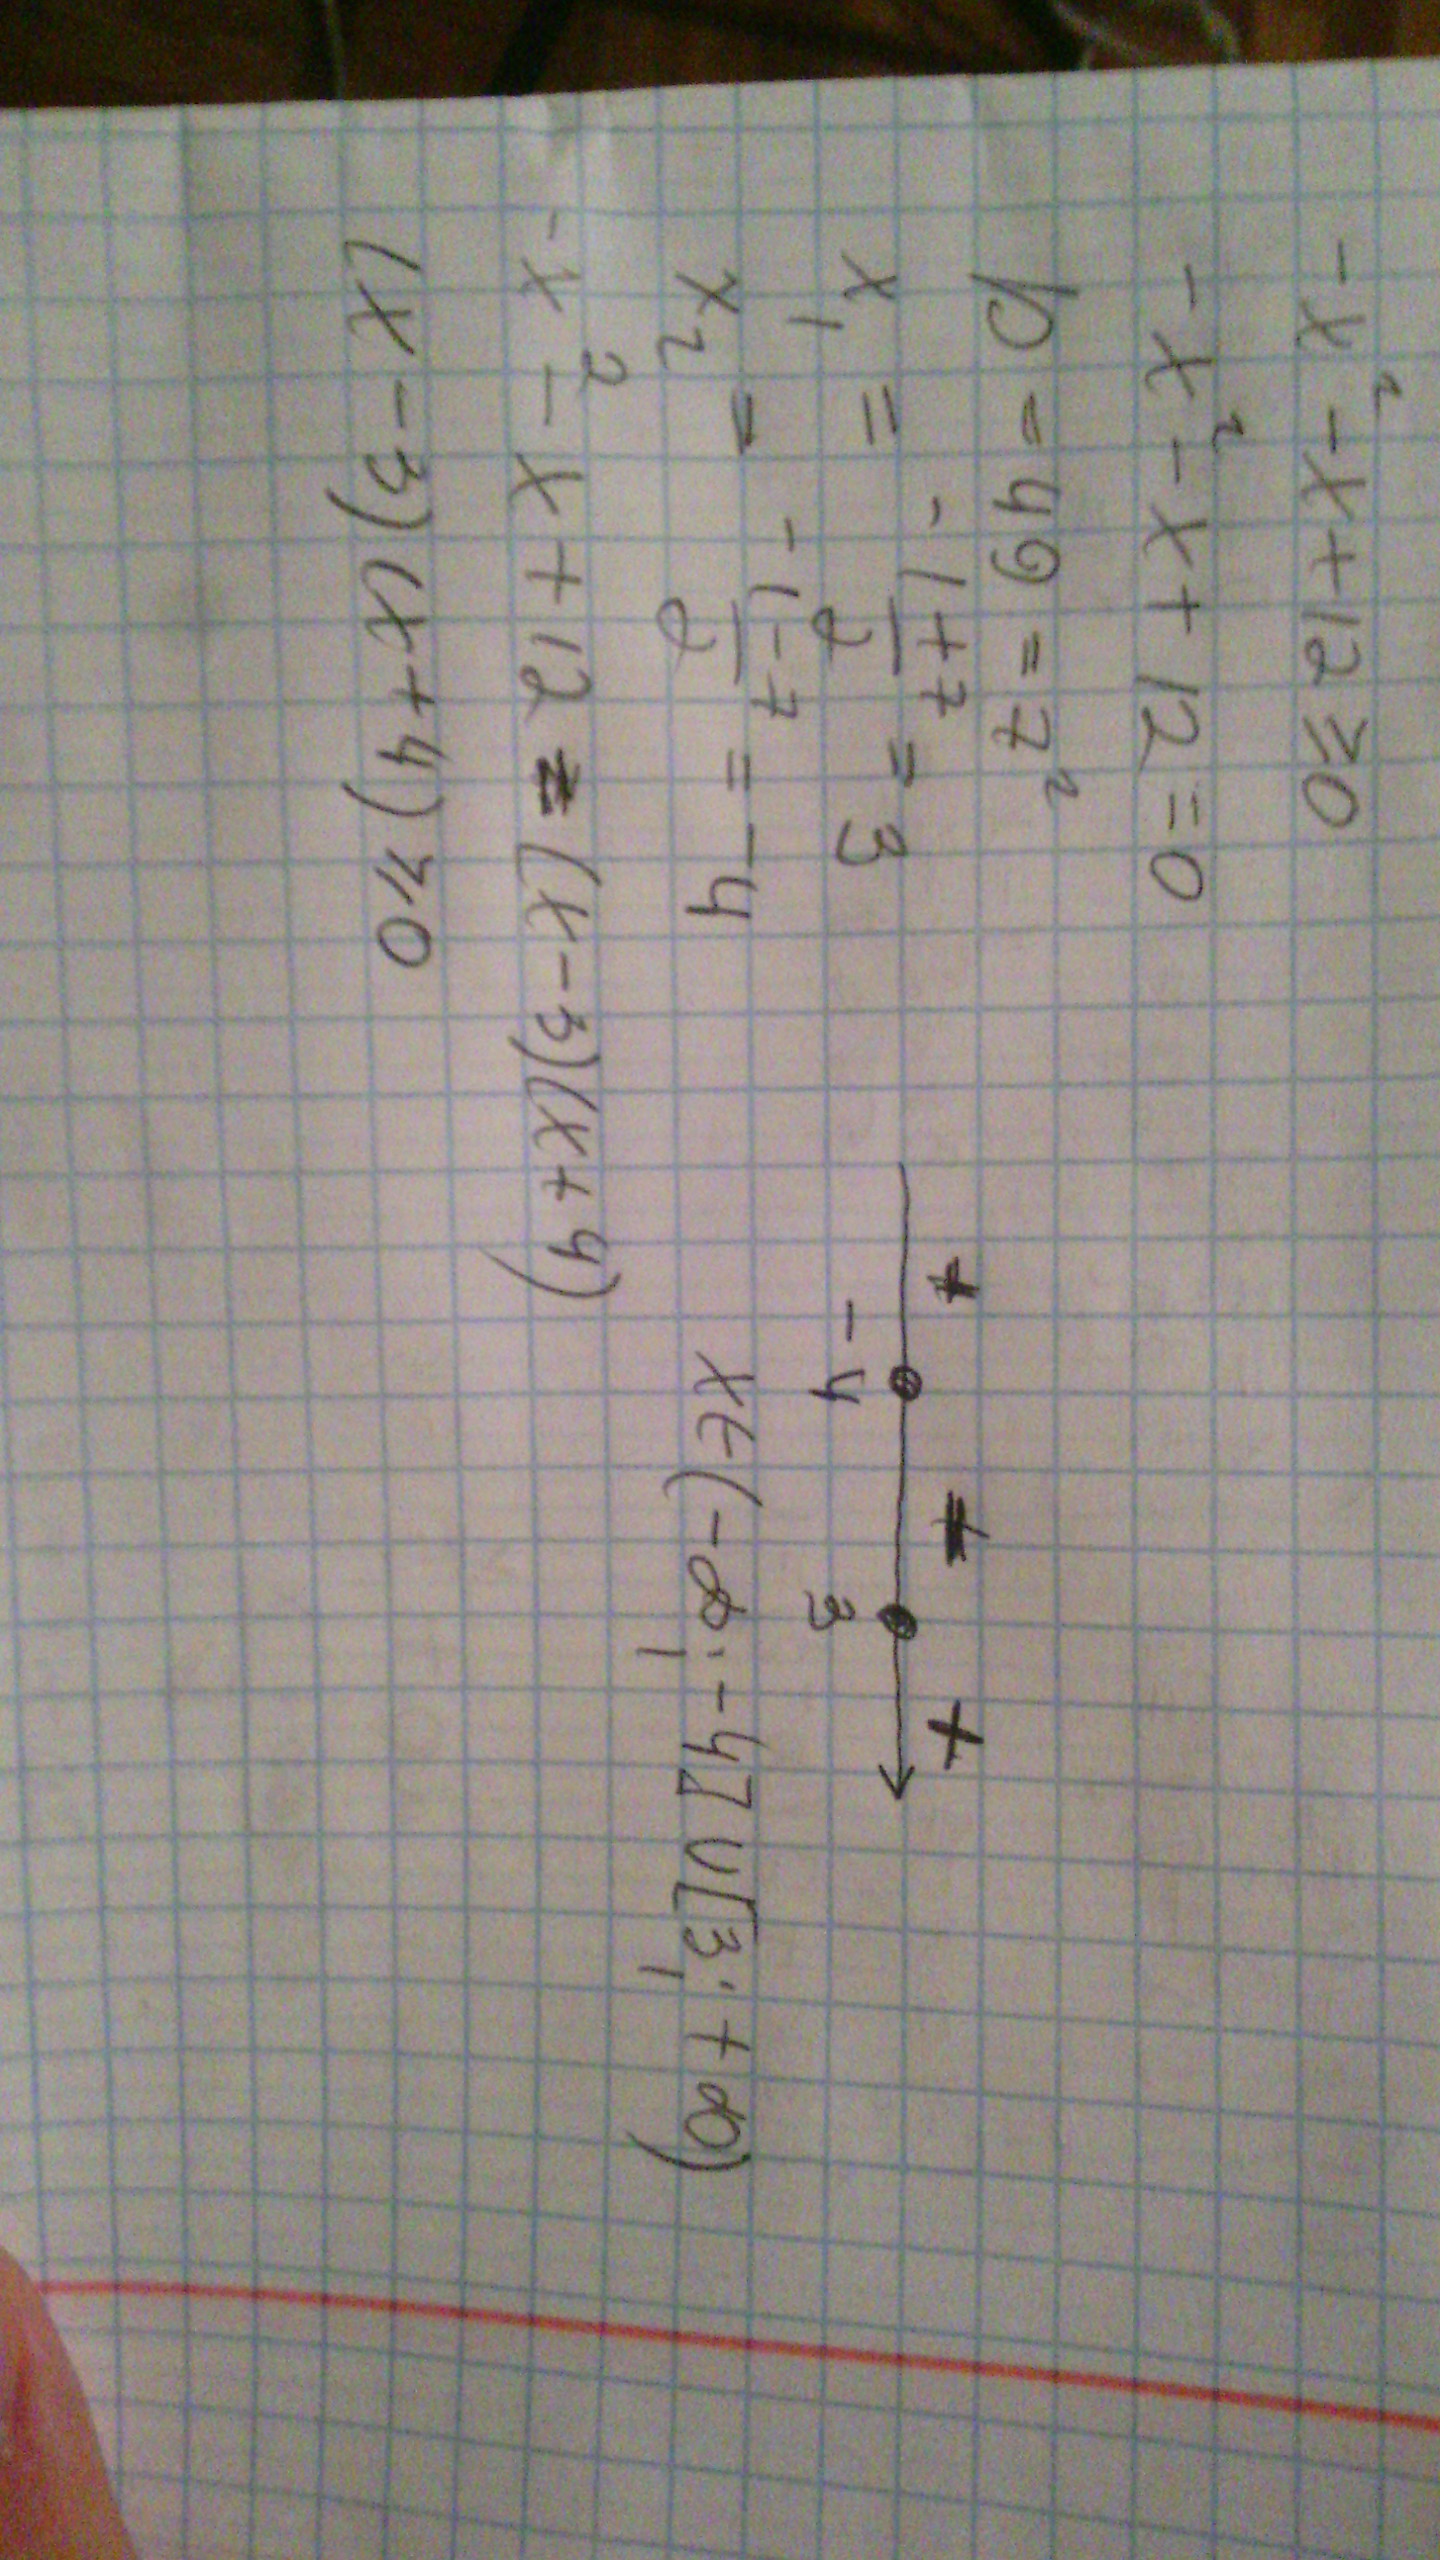 -x² -x+12 ≥0
-x² -x+12=0
D=49=7²
x₁ = (-1+7)/2 = 3
x₂ = (-1-7)/2 = -4
-x² -x+12 = (x-3)(x+4)
(x-3)(x+4) ≥0
+ - +
-4 3
x∈(-∞;-4]U[3;+∞)